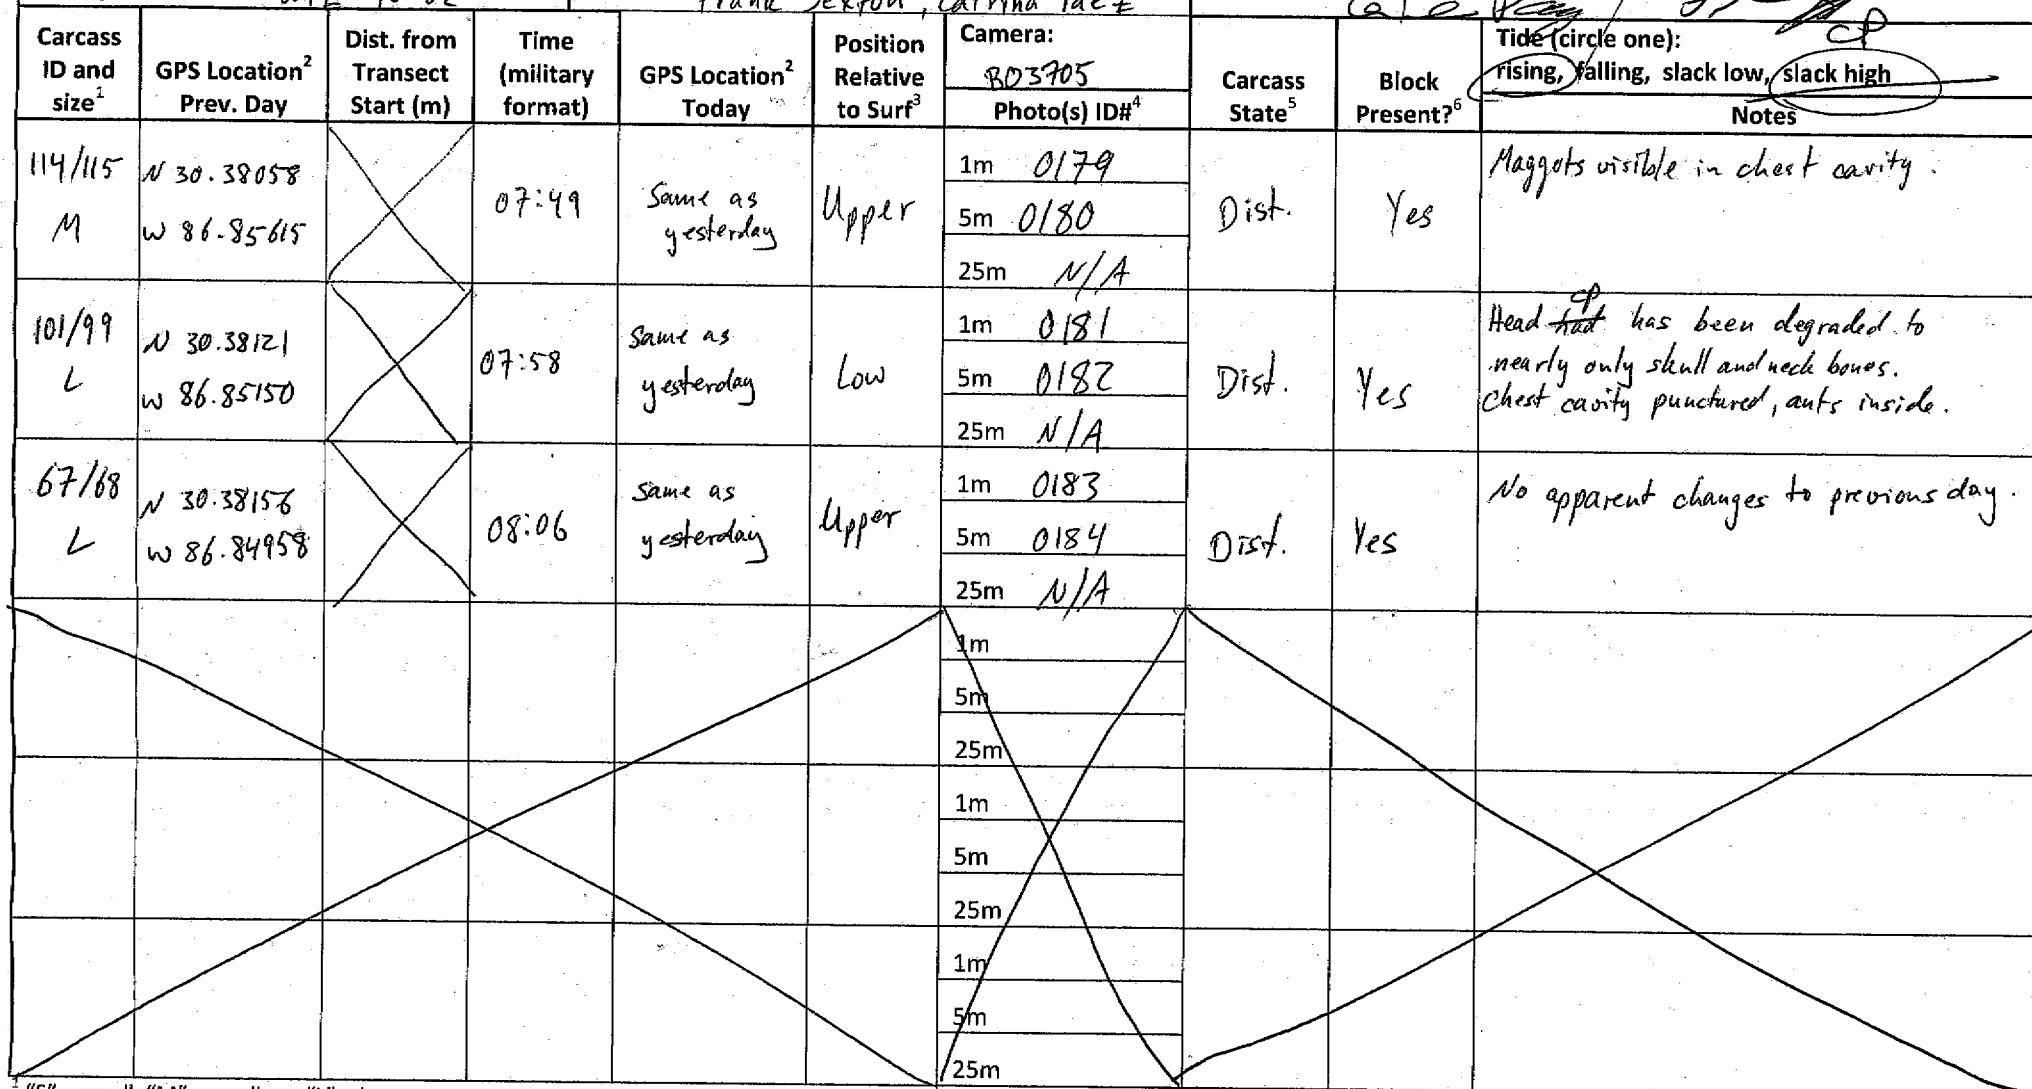 Frank Sexton, Catrina
Carcass ID and size1
GPS Location2 Prev. Day
Dist. from Transect Start (m)
Time (military format)
GPS Location2 Today
Position Relative to Surf3
Camera:
B03705
Photo(s) ID#4
Carcass State5
Block Present?6
CP
Tide (circle one):
rising, falling, slack low, slack high
Notes
114/115
M
N 30.38058
W 86.85615
07:49
Same as
yesterday
Upper
1m 0179
5m 0180
25m N/A
Dist.
Yes
Maggots visible in chest cavity.
101/99
L
N 30.38121
W 86.85150
07:58
Same as
yesterday
Low
1m 0181
5m 0182
25m N/A
Dist.
Yes
CP
Head had has been degraded to
nearly only skull and neck bones.
Chest cavity punctured, ants inside.
67/68
L
N 30.38156
W 86.84958
08:06
Same as
yesterday
Upper
1m 0183
5m 0184
25m N/A
Dist.
Yes
No apparent changes to previous day.
1m
5m
25m
1m
5m
25m
1m
5m
25m